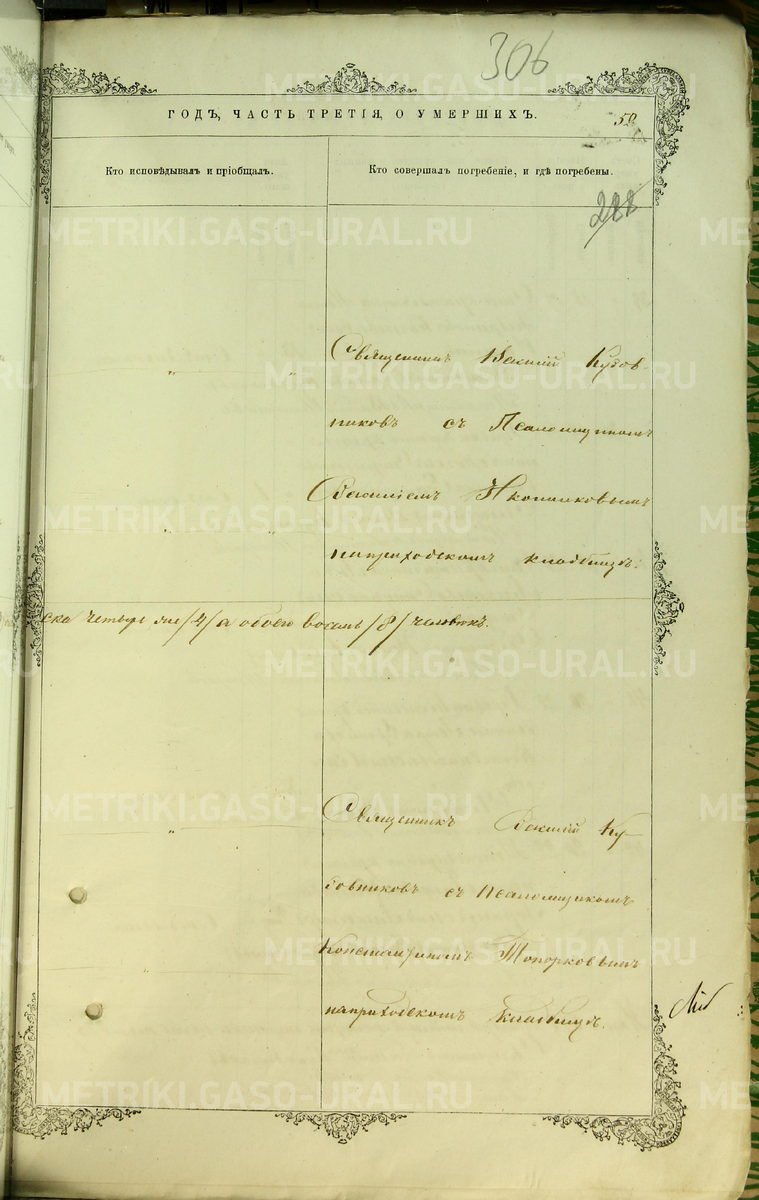 306
ГОДЪ, ЧАСТЬ ТРЕТІЯ, О УМЕРШИХЪ.
50
Кто исповѣдывалъ и пріобщалъ.
Кто совершалъ погребеніе, и гдѣ погребены.
288
METRIKI.GASO-URAL.RU
Священникъ Василій Кудов-
никовъ съ Псаломщикомъ
Василіемъ Иконниковымъ
наприходскомъ кладбищѣ.
ска четыре /4/ а обоего восемь /8/ человѣкъ.
Священникъ Василій Ку
довниковъ съ Псаломщикомъ
Константиномъ Топорковымъ
наприходскомъ кладбищѣ.